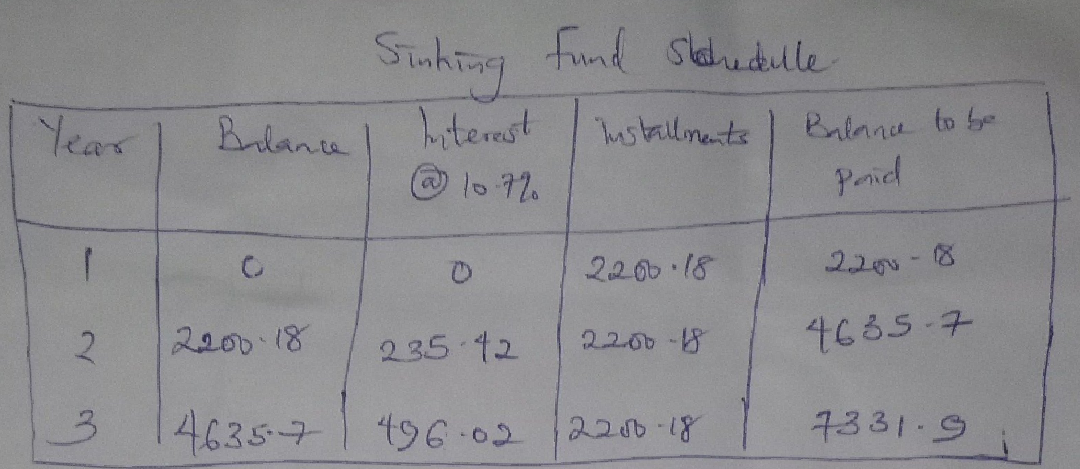 Sinking Fund Schedule
Year Balance Interest @ 10.7% Installments Balance to be paid
1 0 0 2200.18 2200-18
2 2200.18 235.42 2200-18 4635-7
3 4635-7 496.02 2200-18 7331.9